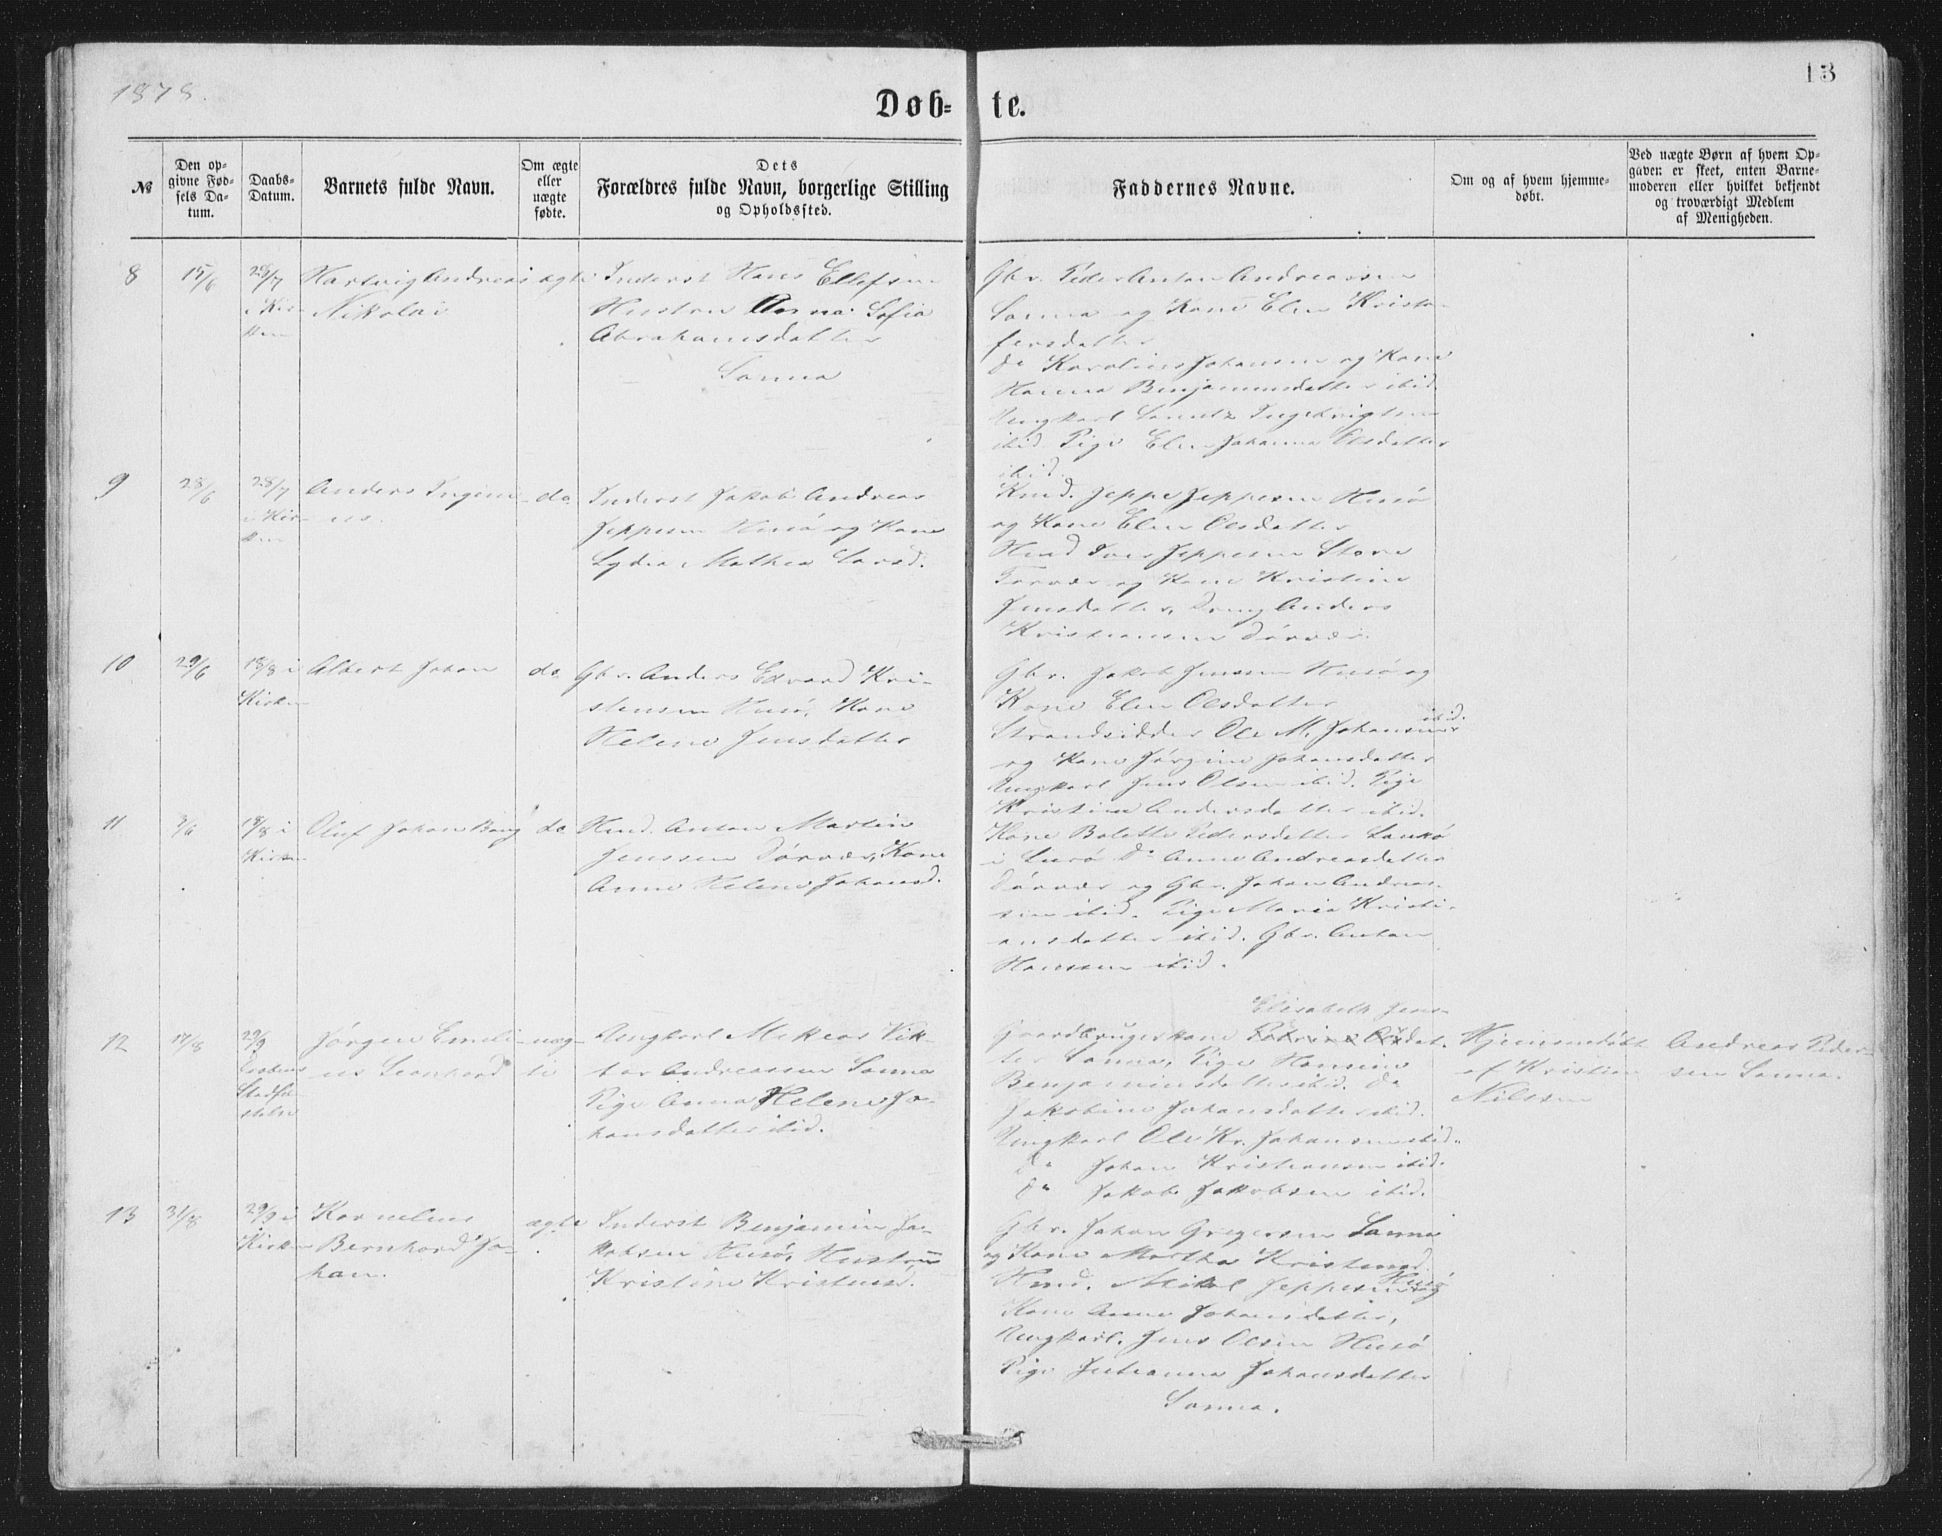 1878.
13
Döb-
te.
№
Den op-
givne Fød-
sels Da-
tum.
Daabs-
Datum.
Barnets fulde Navn.
Om ægte
eller
uægte
fødte.
Dets
Forældres fulde Navn, borgerlige Stilling
og Opholdssted.
Faddernes Navne.
Om og af hvem hjemme-
døbt.
Ved uægte Børn af hvem Op-
gaven er skeet, enten Barne-
moderen eller hvilket bekjendt
og troværdigt Medlem
af Menigheden.
8
15/6
28/7
i Kir-
ken
Hartvig Andreas
Nikolai
ægte
Inderst Hans Ellefsen
Hustru Anna Sofia
Abrahamsdatter
Sanna
Gbr. Peder Anton Andreassen
Sanna og Kone Elen Kristo-
fersdatter
do Karolius Johansen og Kone
Hanna Benjaminsdatter ibid
Ungkarl Ingebrigtsen
ibid. Pige Elen Johanna Olsdatter
ibid.
9
28/6
28/7
i Kir-
ken
Anders Ingem-
us.
do.
Inderst Jakob Andreas
Jeppesen Husö og Kone
Lydia Mathea Larsd.
Kmd. Jeppe Jeppesen Husö
og Kone Elen Olsdatter
Hmd Iver Jeppesen Store
og Kone Kristine
Jensdatter, Anders
Kristiansen Dörvær.
10
29/6
18/8 i
Kirken
Albert Johan
do.
Gbr. Anders Edvard Kri-
stensen Husö, Kone
Helene Jensdatter
Gbr. Jakob Jensen Husö og
Kone Elen Olsdatter
Strandsidder Ole M. Johansen ibid.
og Kone Jörgine Johansdatter
Ungkarl Jens Olsen ibid. Pige
Kristine Andersdatter ibid.
11
3/6
18/8 i
Kirken
Oluf Johan Bang
do
Hmd. Anton Martin
Jenssen Dörvær, Kone
Anne Helene Johansd.
Kone Bolette Pedersdatter
i Lurö Do Anne Andreasdatter
Dörvær og Gbr. Johan Andreas-
sen ibid. Pige Maria Kristi-
ansdatter ibid. Gbr. Anton
Hanssen ibid.
12
17/8
29/9
Stadfæ-
stelse
Jörgen Emeli-
us Leonhard
uæg-
te
Ungkarl Mekeas Vik-
tor Andreassen Sanna
Pige Anna Helene Jo-
hansdatter ibid.
Elisabeth Jens-
Gaardbrugerkone dat-
ter Sanna, Pige Hansine
Benjaminsdatter ibid. Do
Jakobine Johansdatter ibid.
Ungkarl Ole Kr. Johansen ibid.
do Johan Kristiansen ibid.
do Jakob Jakobsen ibid.
Hjemmedöbt
af Kristian
Nilssen
Andreas Peder-
sen Sanna.
13
31/8
29/9 i
Kirken
Kornelius
Bernhard Jo-
han.
ægte
Inderst Benjamin Ja-
kobsen Husö, Hustru
Kristine Kristensd.
Gbr. Johan Gregersen Sanna
og Kone Martha Kristensd.
Hmd. Mikal Jeppesen Husö og
Kone Anne Johansdatter,
Ungkarl. Jens Olsen Husö
Pige Julianna Johansdatter
Sanna.